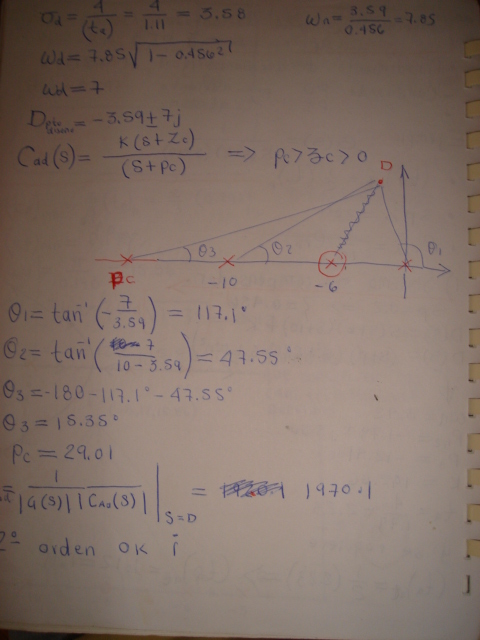 σd = 4/(ts) = 4/1.11 = 3.58
ωn = 3.59/0.456 = 7.85
ωd = 7.85√(1 - 0.456²)
ωd = 7
Dpto diseño = -3.59 ± 7j
Cad(s) = K(s+Zc)/(s+Pc) => Pc > Zc > 0
D
θ3 θ2 θ1
Pc -10 -6
θ1 = tan⁻¹(-7/3.59) = 117.1°
θ2 = tan⁻¹(7/10-3.59) = 47.55°
θ3 = -180 - 117.1° - 47.55°
θ3 = 15.35°
Pc = 29.01
= 1/|G(s)||CAD(s)| |s=D = 1970.1
2º orden OK ¡